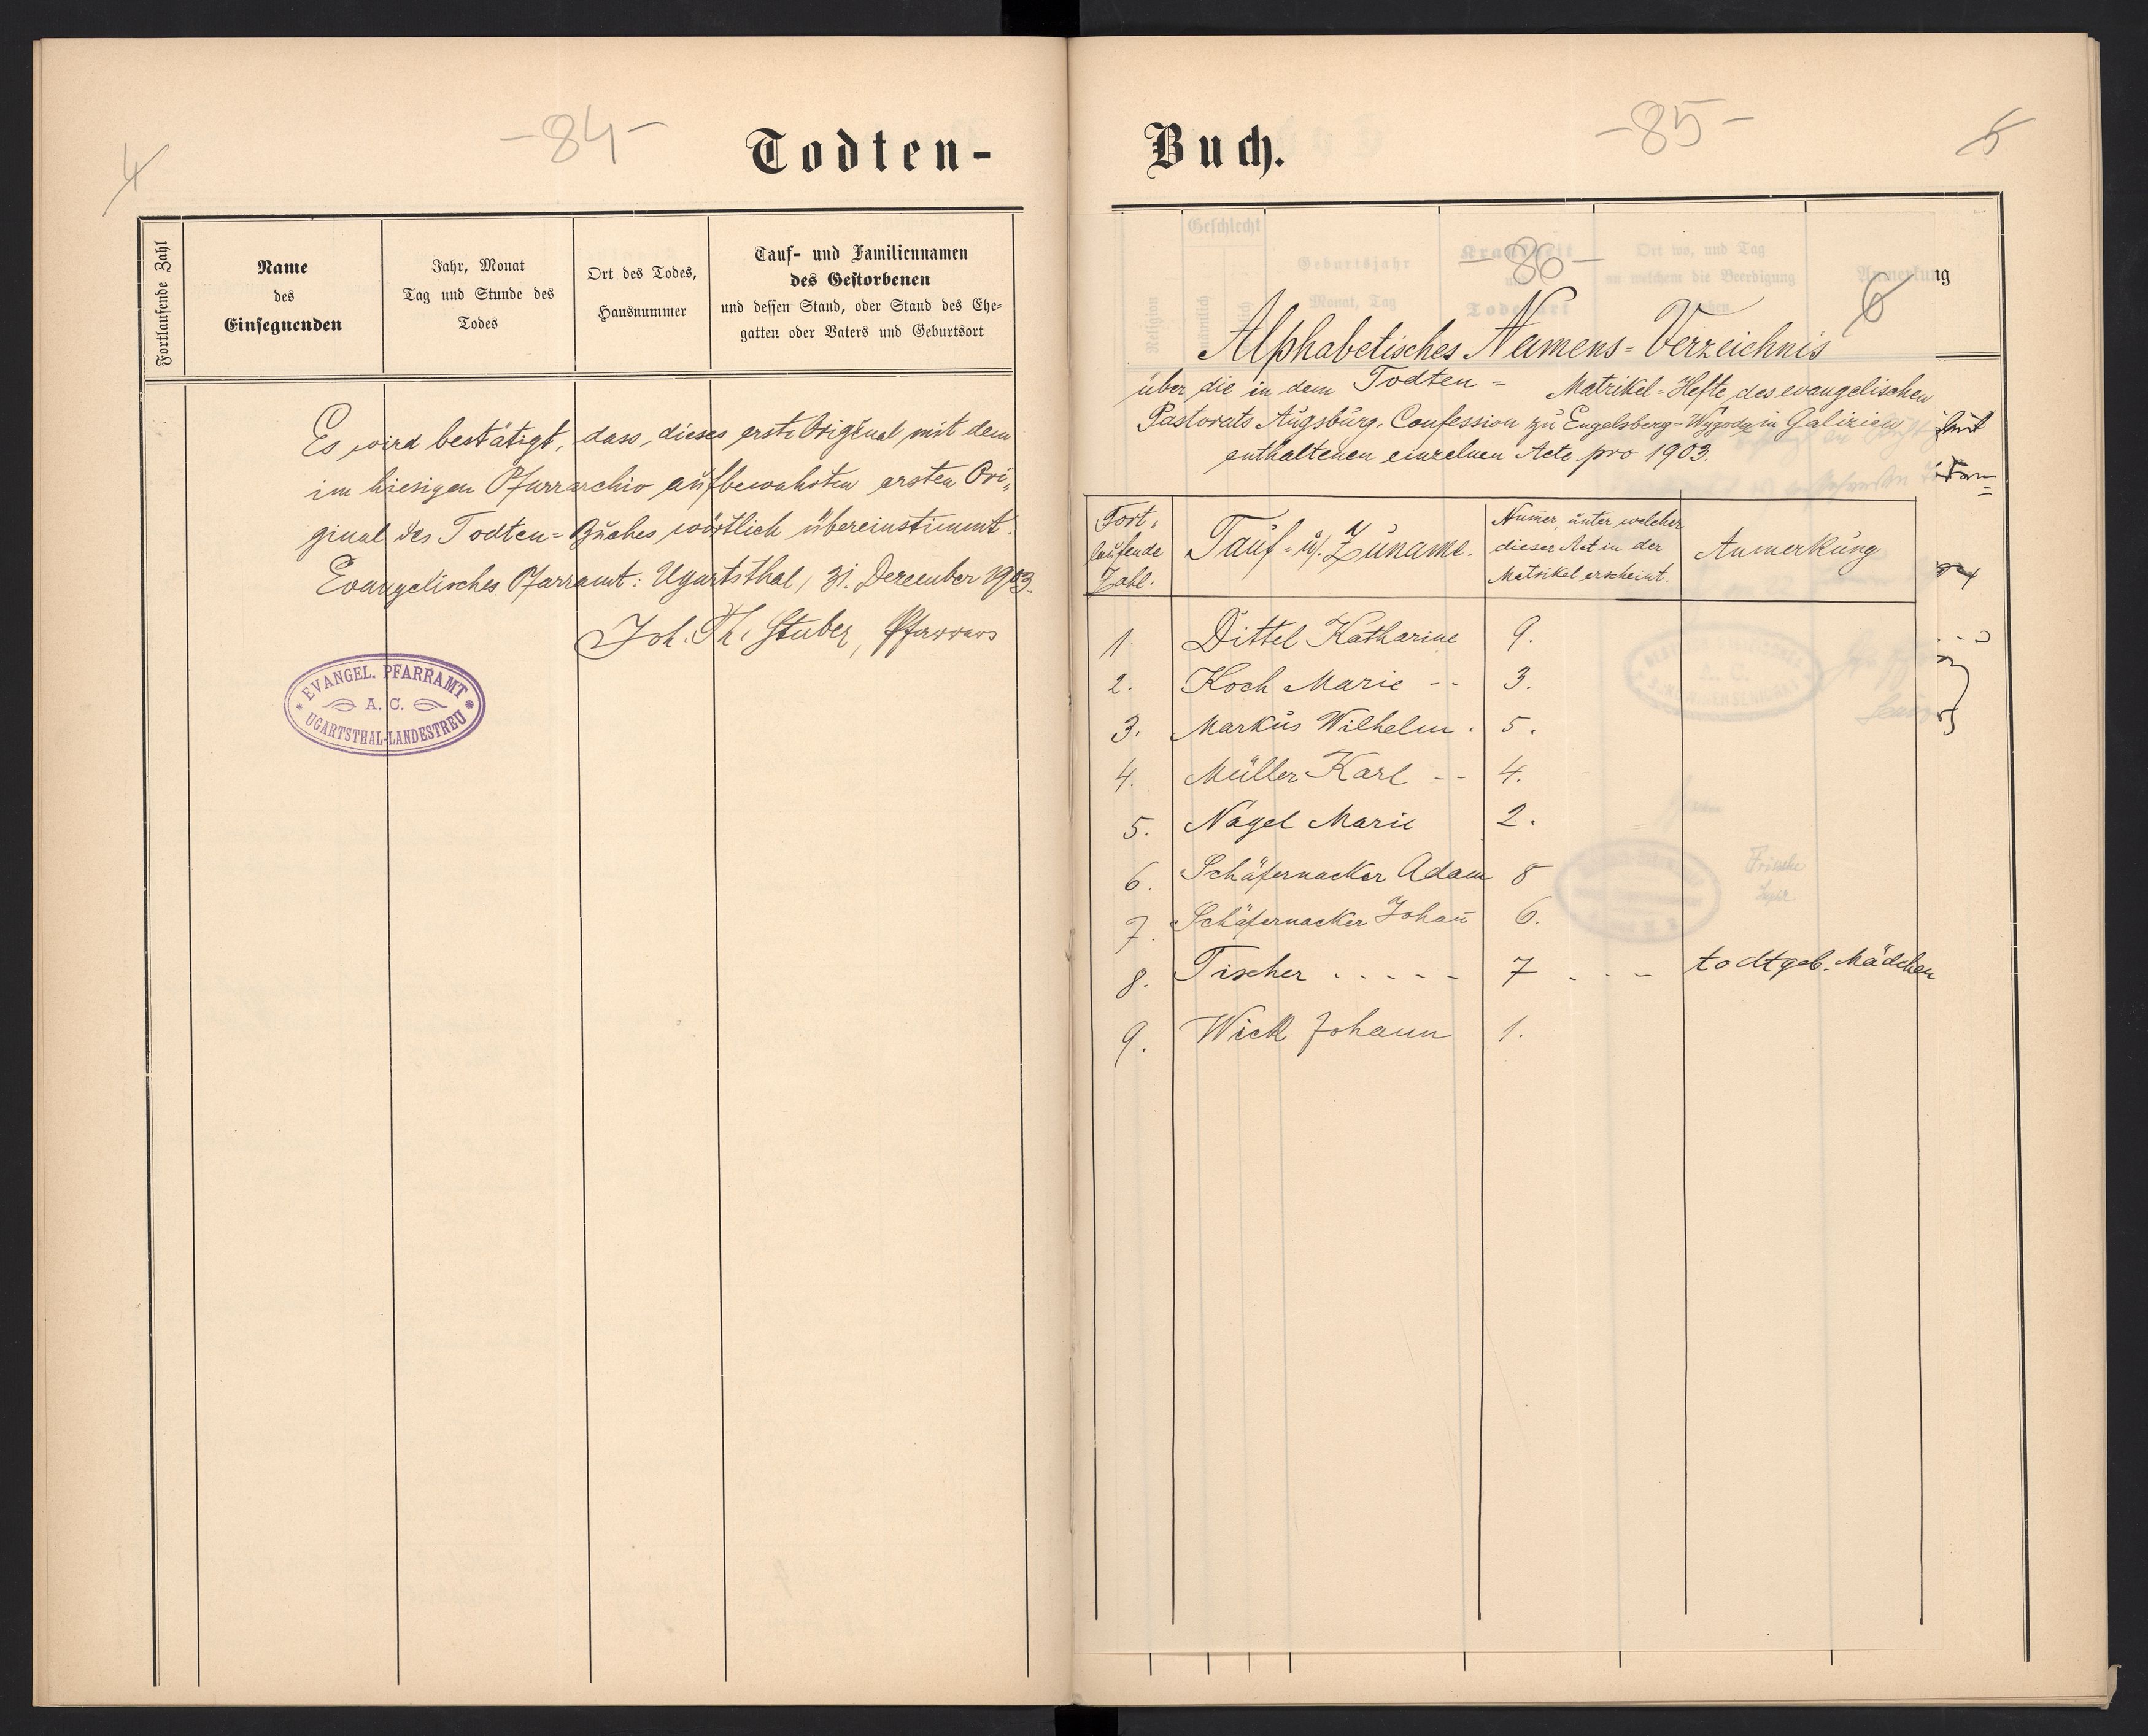 4
-84-
Todten-
Fortlaufende Zahl
Name
des
Einsegnenden
Jahr, Monat
Tag und Stunde des
Todes
Ort des Todes,
Hausnummer
Tauf- und Familiennamen
des Gestorbenen
und dessen Stand, oder Stand des Ehe-
gatten oder Vaters und Geburtsort
Es wird bestätigt, dass dieses erste Original mit dem
im hiesigen Pfarrarchiv aufbewahrten ersten Ori„
ginal des Todten=Buches wörtlich übereinstimmt.
Evangelisches Pfarramt: Ugartsthal, 31. December 1903.
Joh. Th. Stuber,
EVANGEL. PFARRAMT
A. C.
UGARTSTHAL-LANDESTREU
Buch.
-85-
5
-86-
6
ng
Alphabetisches Namens=Verzeichnis
über die in dem Todten= Matrikel=Hefte des evangelischen
Pastorats Augsburg. Confession zu Engelsberg=Wygoda in Galizien
enthaltenen einzelnen Acte pro 1903.
Fort.
laufende
Zahl.
Tauf= u. Zuname.
Numer, unter welcher
dieser Act in der
Matrikel erscheint.
Anmerkung
1. Dittel Katharine 9.
2. Koch Marie -- 3.
3. Markus Wilhelm . 5.
4. Müller Karl -- 4.
5. Nagel Marie 2.
6. Schäfernacker Adam 8
7. Schäfernacker Johañ 6.
8. Tischer ..... 7 ... todtgeb. Mädchen
9. Wick Johann 1.